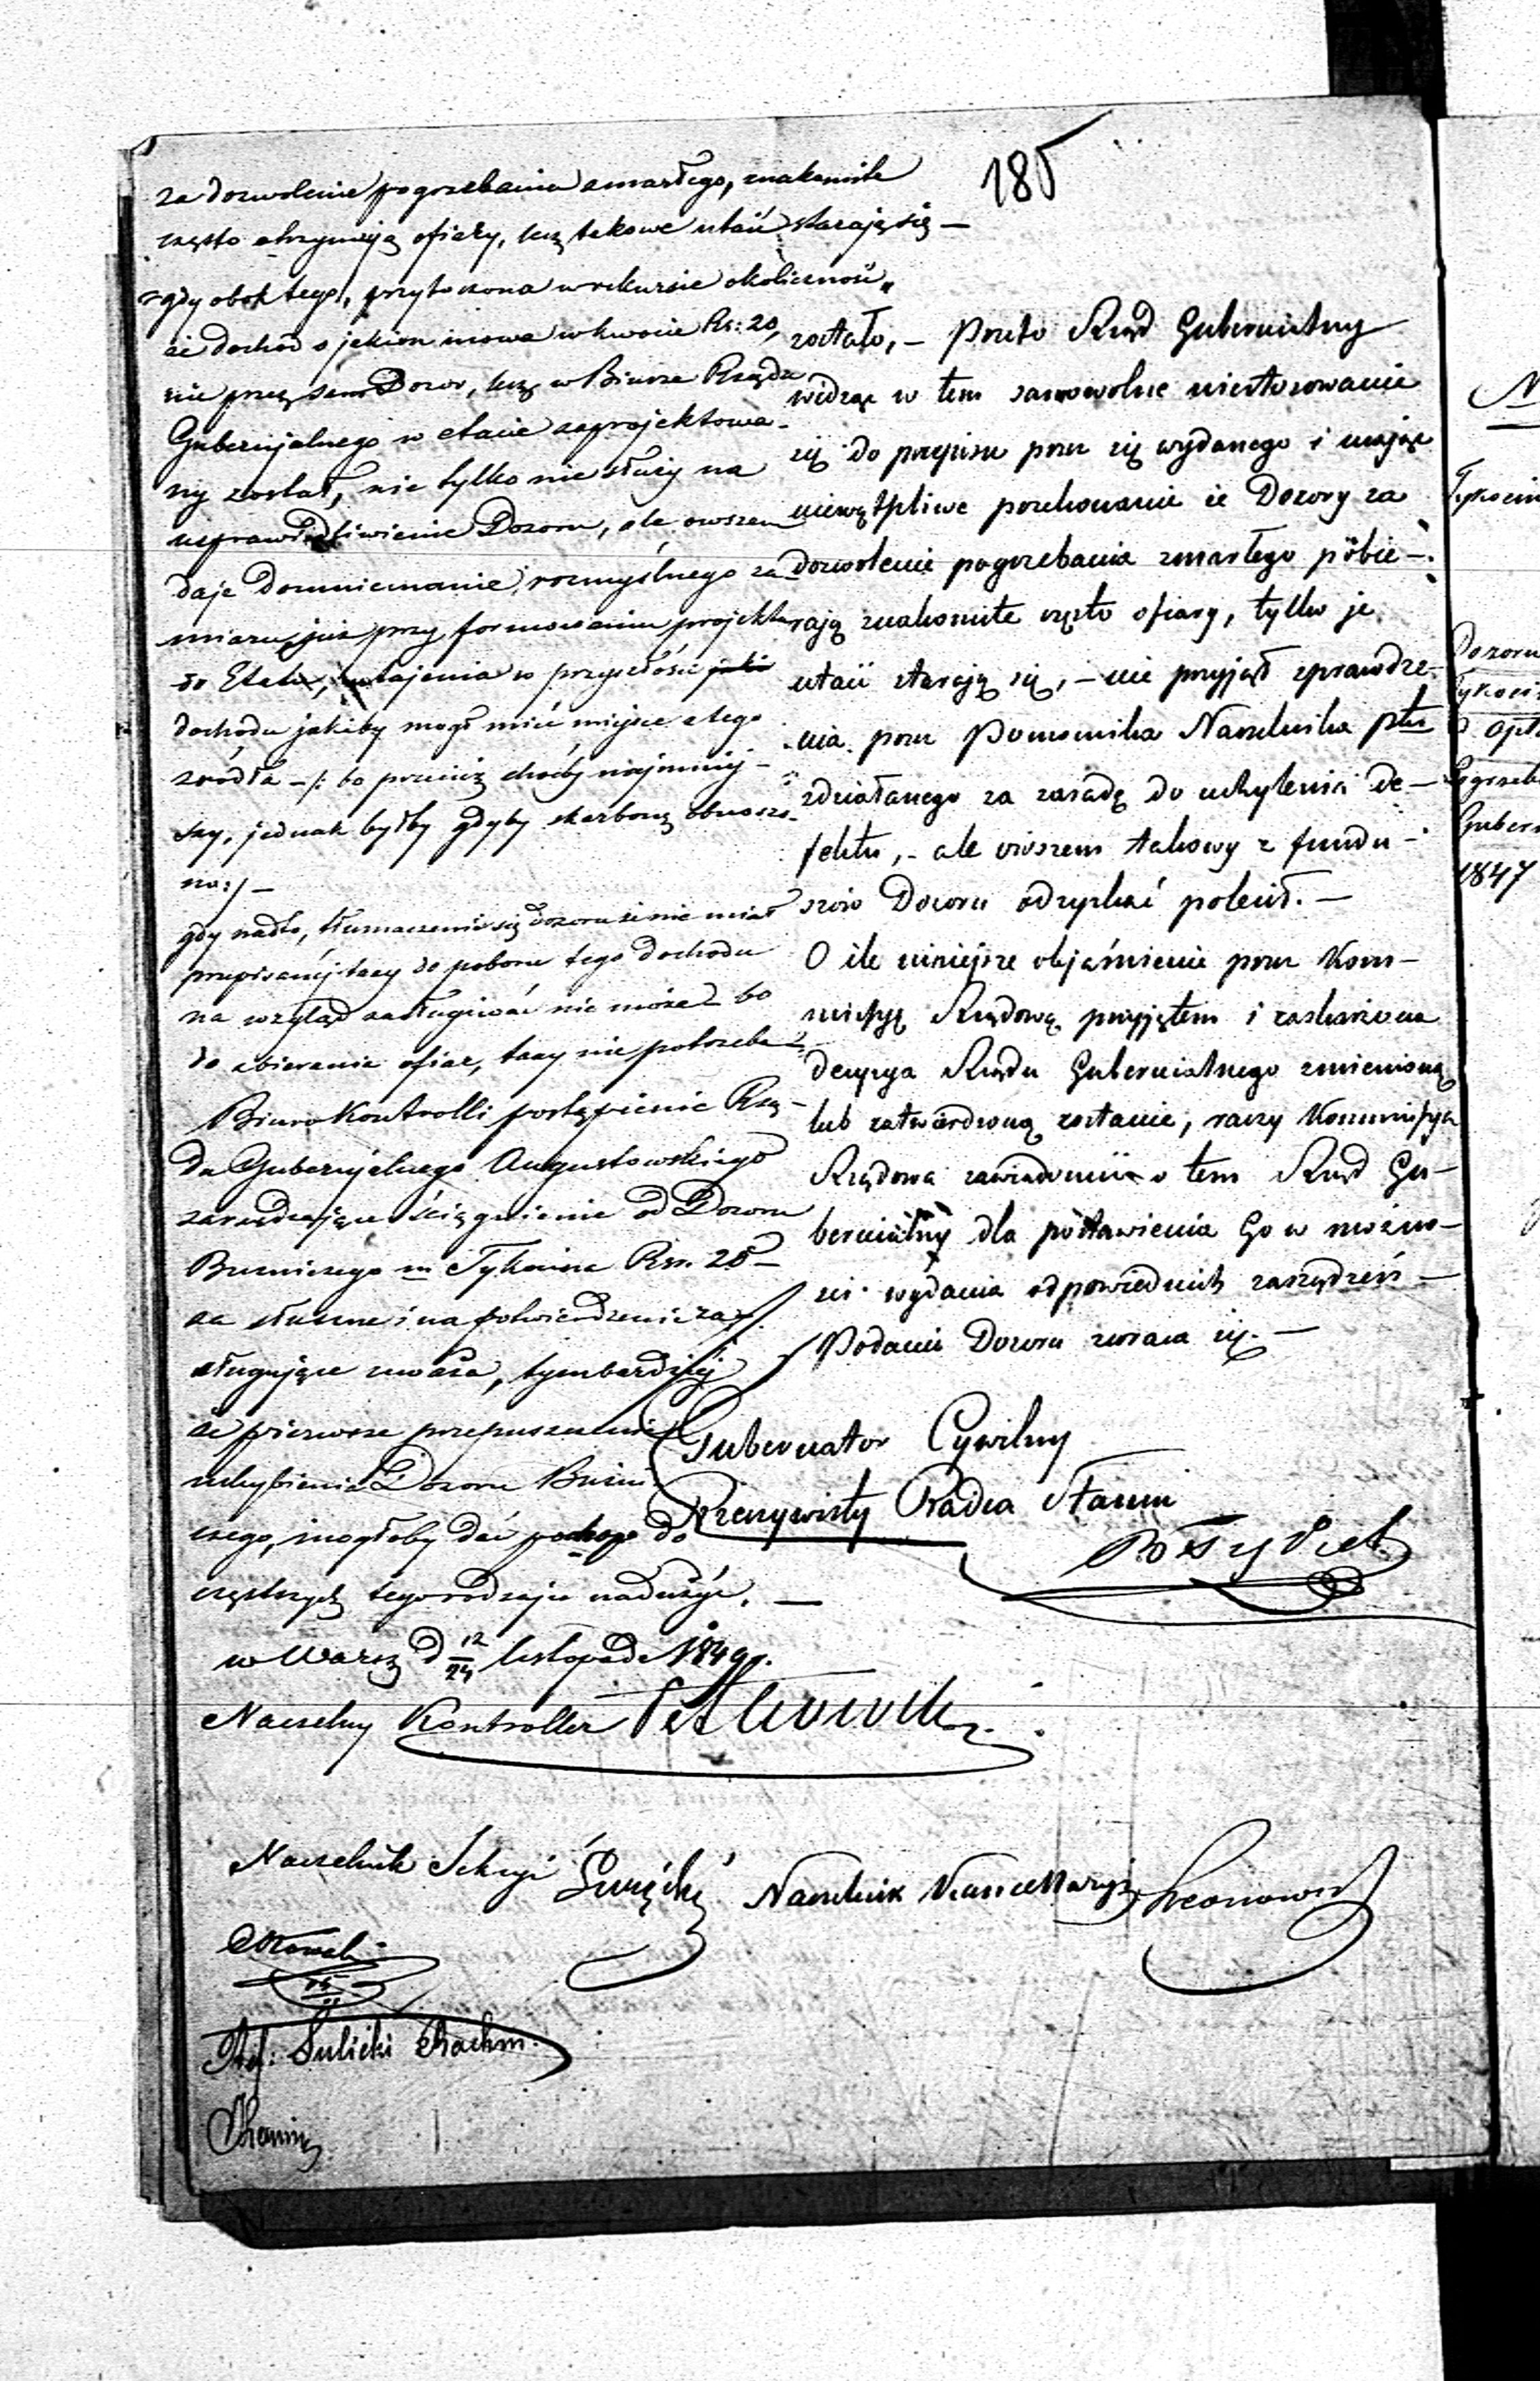 185
za dozwolenie pogrzebania zmarłego, znakomite
często otrzymują ofiary, lecz takowe utaić starają się —
gdy obok tego, przytoczona w rekursie okoliczność,
że dochod o jakim mowa w kwocie Rs: 20,
nie przez sam Dozor, lecz w Biurze Rządu
Gubernjalnego w etacie zaprojektowa-
ny został, nie tylko nie służy na
usprawiedliwienie Dozoru, ale owszem
daje domniemanie rozmyślnego za-
miaru, już przy formowaniu projektu
do Etatu, utajenia w przyszłości
dochodu jakiby mogł mieć miejsce z tego
zródła — /: bo przecież choćby najmniej-
szy, jednak byłby gdyby skarbonę obnoszo-
no :/ —
gdy nadto, tłumaczenie się Dozoru że nie miał
przepisanéj taxy do poboru tego dochodu
na wzgląd zasługiwać nie może — bo
do zbierania ofiar, taxy nie potrzeba,
Biuro Kontrolli postąpienie Rzą-
du Gubernjalnego Augustowskiego
zarządzające ściągnienie od Dozoru
Bużniczego m. Tykocina Rsr. 20 —
za słuszne i na potwierdzenie za-
sługujące uważa, tymbardziéj
że pierwsze przepuszczenie
uchybienia Dozoru Bużni
czego, mogłoby dać pochop do
częstszych tego rodzaju nadużyć. —
w Warsz d 12/24 listopada 1849 r.
Naczelny Kontroller
Naczelnik Sekcyi
Ref: Sulicki Rachm.
zostało, — Przeto Rząd Gubernialny
widząc w tem samowolne niestosowanie
się do przepisu przez się wydanego i mając
niewątpliwe przekonanie że Dozory za
dozwolenie pogrzebania zmarłego pobie-
rają znakomite często ofiary, tylko je
utaić starają się, — nie przyjął sprawdze-
nia przez Pomocnika Naczelnika ptu
zdziałanego za zasadę do uchylenia de-
fektu, — ale owszem takowy z fundu-
szów Dozoru odzyskać polecił. —
O ile niniejsze objaśnienie przez Kom-
missyę Rządową przyjętem i zaskarżona
decyzya Rządu Gubernialnego zmienioną
lub zatwierdzoną zostanie, raczy Kommissya
Rządowa zawiadomić o tem Rząd Gu-
bernialny dla postawienia Go w możno-
ści wydania odpowiednich zarządzeń —
Podanie Dozoru zwraca się. —
Gubernator Cywilny
Rzeczywisty Radca Stanu
Naczelnik Kancellaryi
Tykocin
Dozoru
Guber
1847